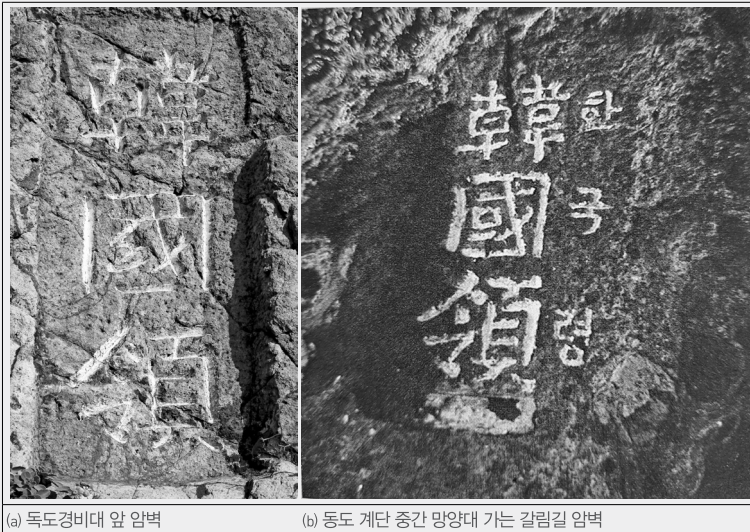 韓
國
領
韓 한
國 국
領 령
(a) 독도경비대 앞 암벽
(b) 동도 계단 중간 망양대 가는 갈림길 암벽